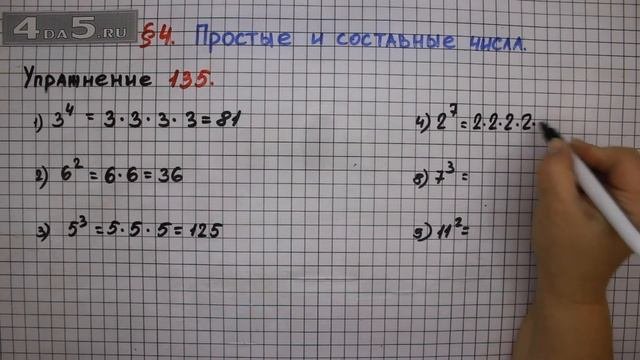 4DA5.RU
§4. Простые и составные числа.
Упражнение 135.
1) 3⁴ = 3·3·3·3=81
2) 6² = 6·6=36
3) 5³ =5·5·5=125
4) 2⁷ = 2·2·2·2·
8) 7³ =
9) 11² =